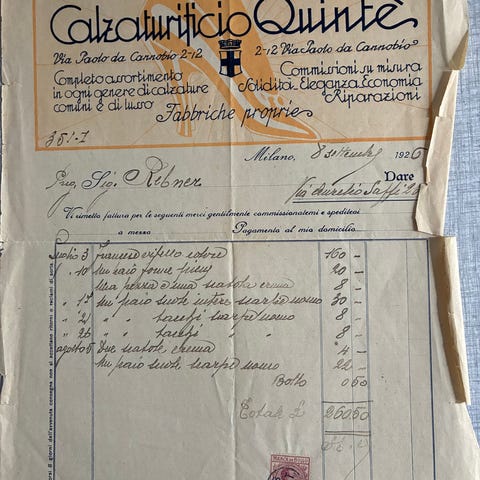 Calzaturificio Quintè
Via Paolo da Cannobio 2-12
2-12 Via Paolo da Cannobio
Completo assortimento
in ogni genere di calzature
comuni e di lusso
Commissioni su misura
Solidità Eleganza Economia
Riparazioni
Fabbriche proprie
Milano, 8 settembre 1926
Sig. Ribner
Dare
Via Aurelio Saffi 2
Vi rimetto fattura per le seguenti merci gentilmente commissionatemi e speditevi
a mezzo
Pagamento al mio domicilio.
Luglio 3 Francese colore 160 -
" 10 Un paio forme 20 -
Una pezza e una scatola crema 8 -
" 17 Un paio suole intere scarpe uomo 30 -
" 21 " " tacchi scarpe uomo 8 -
" 26 " " tacchi " " 8 -
agosto 5 Due scatole crema 4 -
Un paio suole scarpe uomo 22 -
Bollo 0 50
Totale £ 260.50
MARCA DA BOLLO